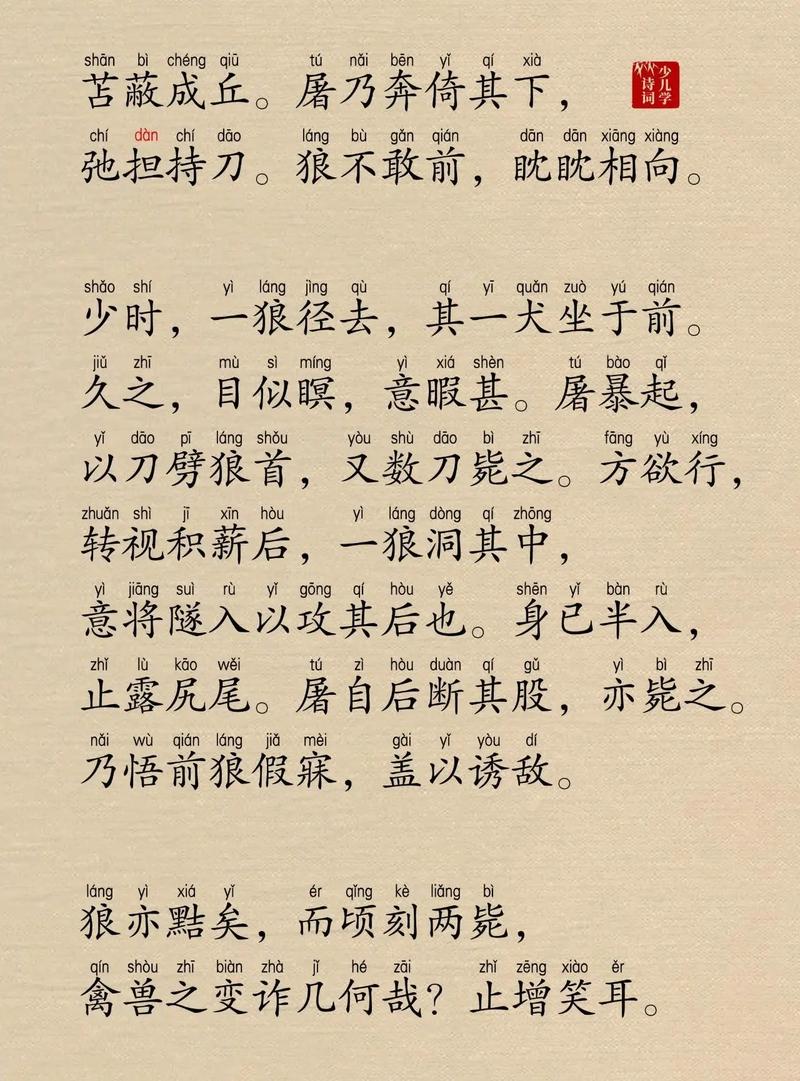 shān bì chéng qiū tú nǎi bēn yǐ qí xià
苫蔽成丘。屠乃奔倚其下，
少儿学
诗词
chí dàn chí dāo láng bù gǎn qián dān dān xiāng xiàng
弛担持刀。狼不敢前，眈眈相向。
shǎo shí yì láng jìng qù qí yī quǎn zuò yú qián
少时，一狼径去，其一犬坐于前。
jiǔ zhī mù sì míng yì xiá shèn tú bào qǐ
久之，目似瞑，意暇甚。屠暴起，
yǐ dāo pī láng shǒu yòu shù dāo bì zhī fāng yù xíng
以刀劈狼首，又数刀毙之。方欲行，
zhuǎn shì jī xīn hòu yì láng dòng qí zhōng
转视积薪后，一狼洞其中，
yì jiāng suì rù yǐ gōng qí hòu yě shēn yǐ bàn rù
意将隧入以攻其后也。身已半入，
zhǐ lù kāo wěi tú zì hòu duàn qí gǔ yì bì zhī
止露尻尾。屠自后断其股，亦毙之。
nǎi wù qián láng jiǎ mèi gài yǐ yòu dí
乃悟前狼假寐，盖以诱敌。
láng yì xiá yǐ ér qǐng kè liǎng bì
狼亦黠矣，而顷刻两毙，
qín shòu zhī biàn zhà jǐ hé zāi zhǐ zēng xiào ěr
禽兽之变诈几何哉？止增笑耳。